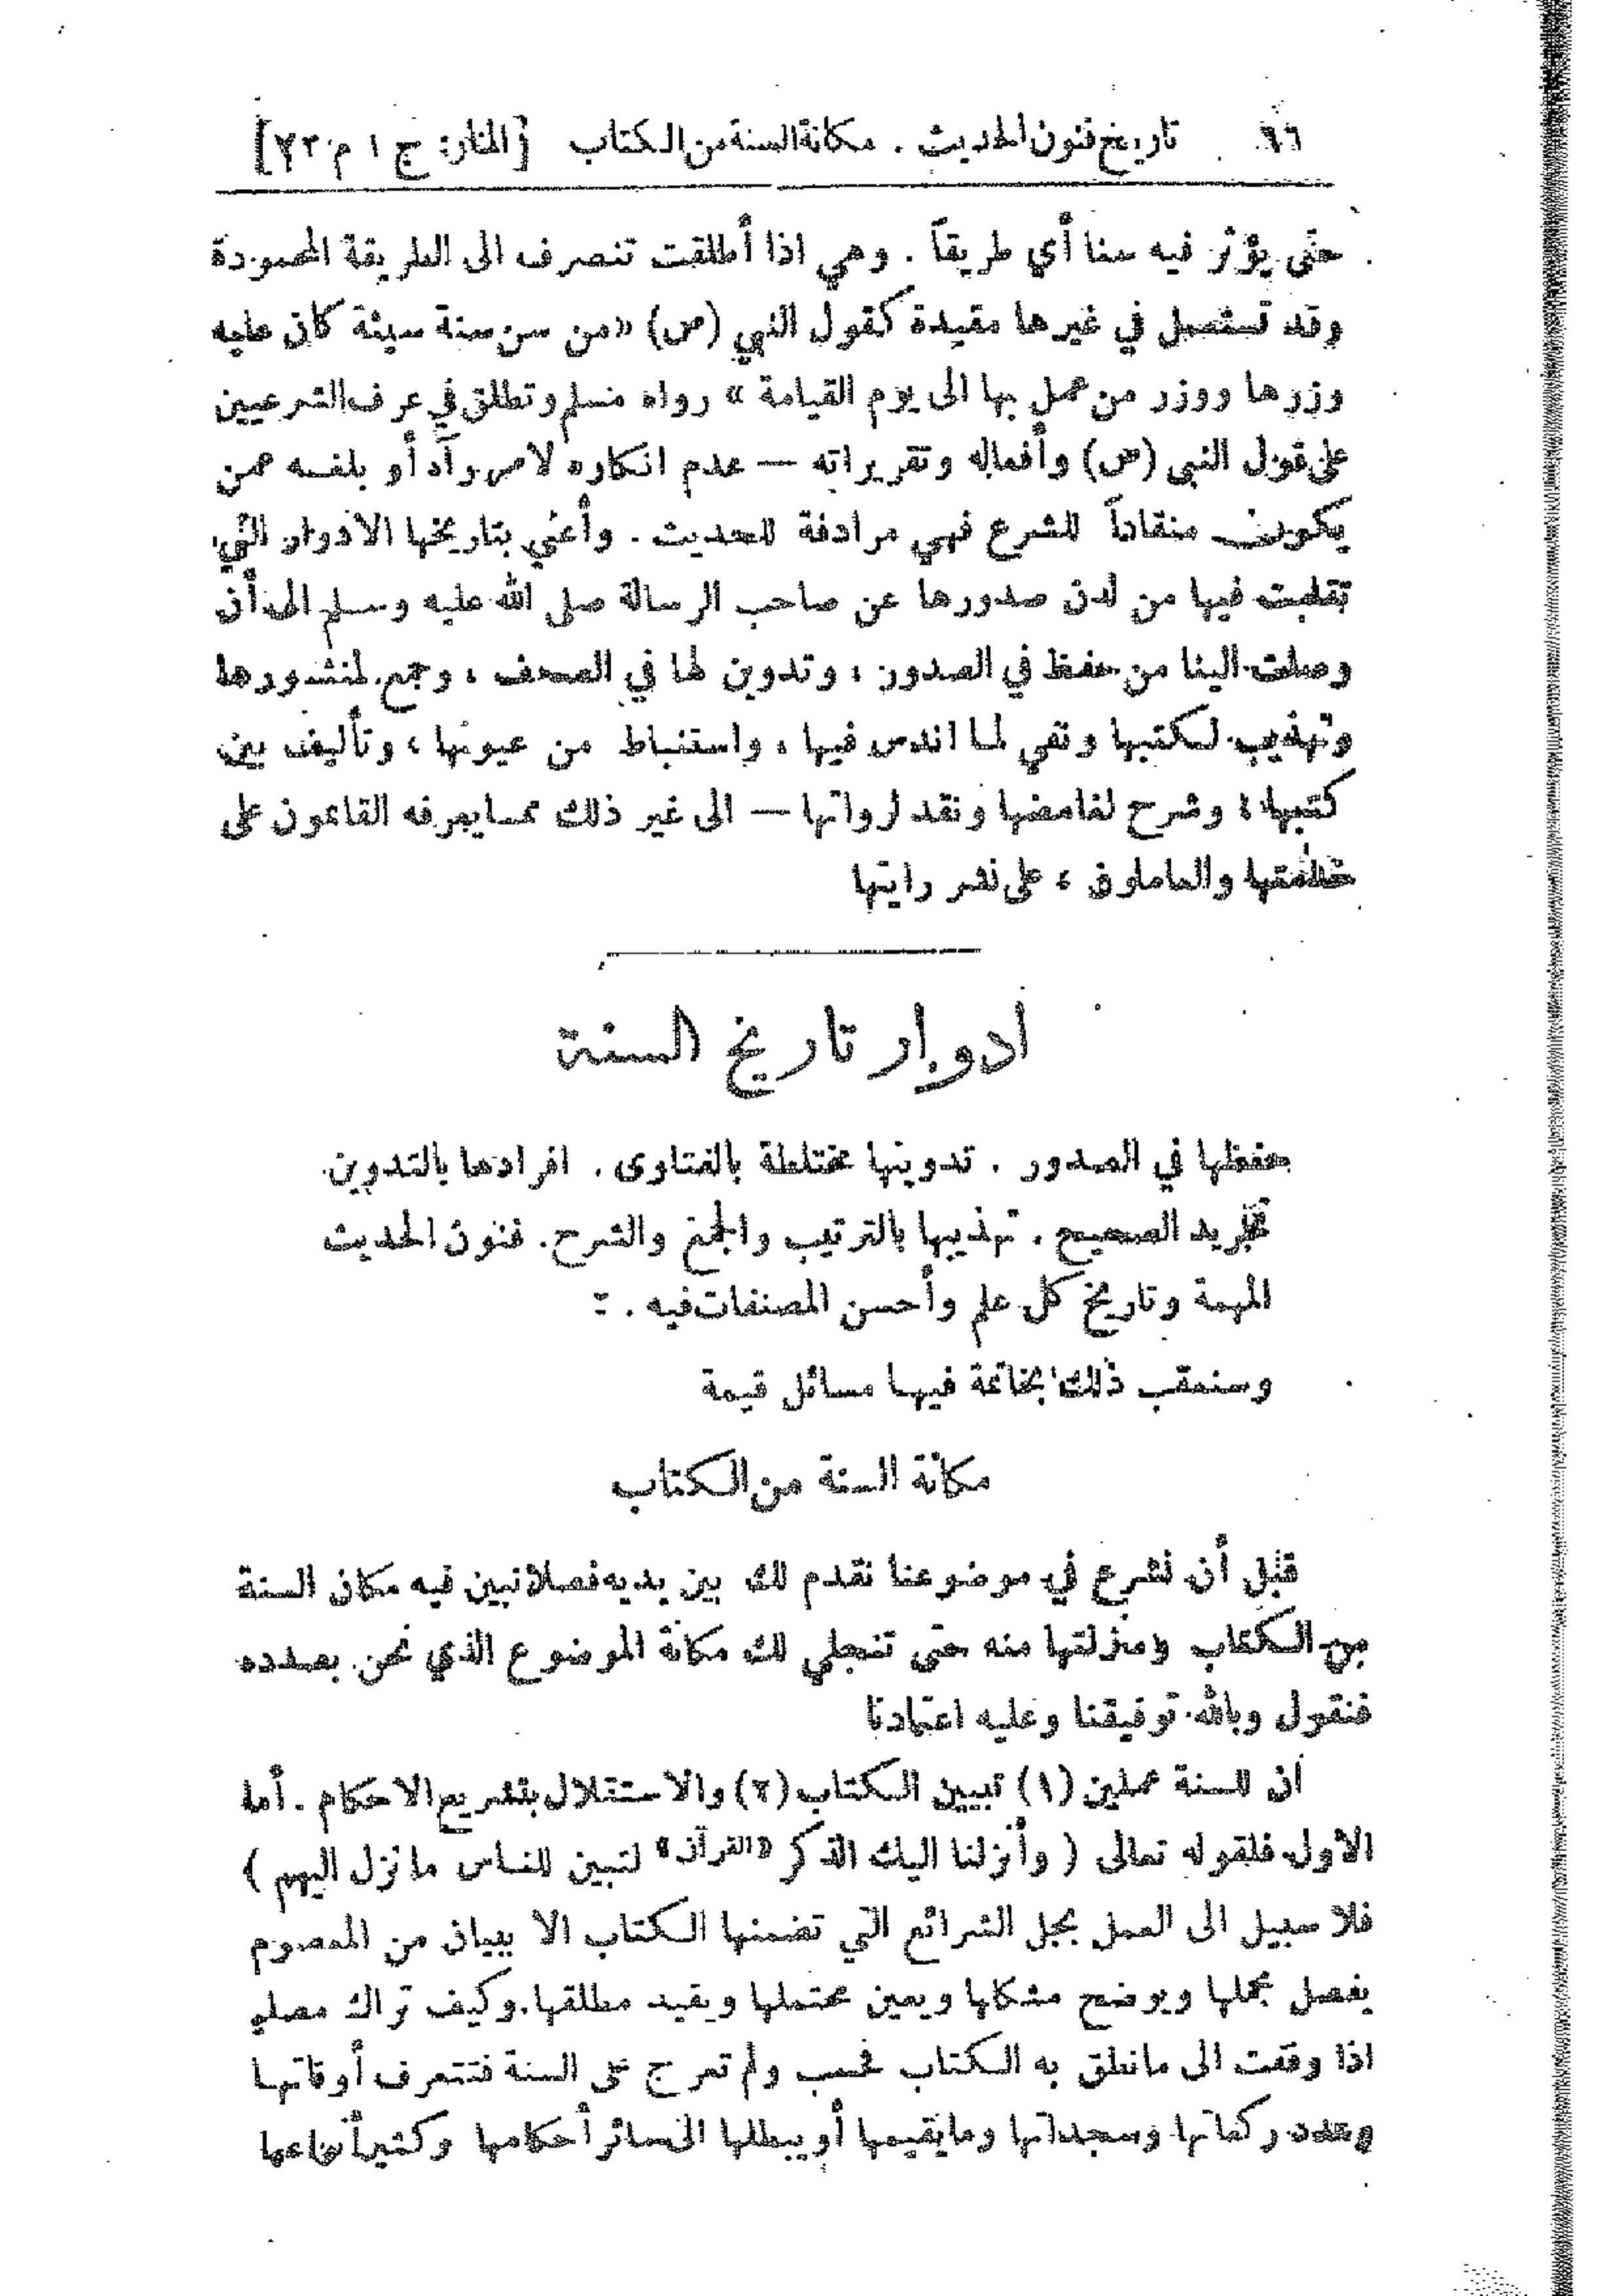 ٦٦ تاريخ فنون الحديث . مكانة السنة من الكتاب [المنار: ج ١ م ٢٢]
حتى يؤثر فيه سننا أي طريقاً . وهي اذا أطلقت تنصرف الى الطريقة المحمودة
وقد تستعمل في غيرها مقيدة كقول النبي (ص) «من سن سنة سيئة كان عليه
وزرها ووزر من عمل بها الى يوم القيامة » رواه مسلم وتطلق في عرف الشرعيين
على قول النبي (ص) وأفعاله وتقريراته — عدم انكاره لامر رآه أو بلغه عمن
يكون منقاداً للشرع فهي مرادفة للحديث . وأعني بتاريخها الادوار التي
تقلبت فيها من لدن صدورها عن صاحب الرسالة صلى الله عليه وسلم الى أن
وصلت الينا من حفظ في الصدور ، وتدوين لها في الصحف ، وجمع لمنشورها
وتهذيب لكتبها ونفي لما اندس فيها ، واستنباط من عيونها ، وتأليف بين
كتبها ، وشرح لغامضها ونقد لرواتها — الى غير ذلك مما يعرفه القائمون على
خدمتها والعاملون ، على نشر رايتها
أدوار تاريخ السنة
حفظها في الصدور . تدوينها مختلطة بالفتاوى . افرادها بالتدوين
تجريد الصحيح . تهذيبها بالترتيب والجمع والشرح . فنون الحديث
المهمة وتاريخ كل علم وأحسن المصنفات فيه .
وسنعقب ذلك بخاتمة فيها مسائل قيمة
مكانة السنة من الكتاب
قبل أن نشرع في موضوعنا نقدم لك بين يديه فصلا نبين فيه مكان السنة
من الكتاب ومنزلتها منه حتى تنجلي لك مكانة الموضوع الذي نحن بصدده
فنقول وبالله توفيقنا وعليه اعتمادنا
ان للسنة عملين (١) تبيين الكتاب (٢) والاستقلال بتشريع الاحكام . أما
الاول فلقوله تعالى ( وأنزلنا اليك الذكر «القرآن» لتبين للناس ما نزل اليهم )
فلا سبيل الى العمل بجل الشرائع التي تضمنها الكتاب الا ببيان من المعصوم
يفصل مجملها ويوضح مشكلها ويعين محتملها ويقيد مطلقها. وكيف تراك مصليا
اذا وقفت الى ما نطق به الكتاب فحسب ولم تعرج على السنة فتتعرف أوقاتها
وعدد ركعاتها وسجداتها وما يقيمها أو يبطلها الى سائر أحكامها وكثير أنواعها